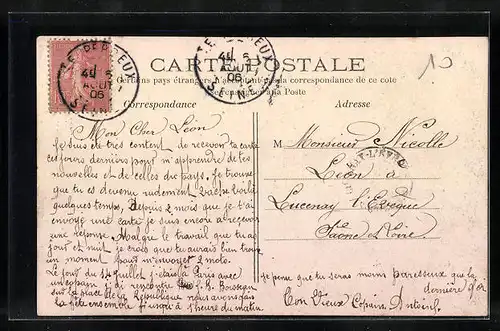 LE PERREUX
AOUT
06
SEINE
LE PERREUX
06
SEINE
CARTE POSTALE
Certains pays étrangers n'acceptent pas la correspondance de ce côté
à la Poste
Correspondance
Adresse
10
Mon Cher Léon
Je suis été très content de recevoir ta carte
ces jours derniers pour m'apprendre de tes
nouvelles et de celles du pays. Je trouve
que tu es devenu rudement
quelques temps, Depuis 2 mois que je t'ai
envoyé une carte je suis encore à recevoir
une réponse. Malgré le travail que tu as
jour et nuit je crois que tu aurais bien trouvé
un moment pour m'envoyer 2 mots.
Le jour du 14 Juillet j'étais à Paris avec
un copain j'ai rencontré
sur la place de la République nous avons
la fête ensemble jusqu'à 1 heure du matin.
M Monsieur Nicolle
Léon à
Lucenay l'Evêque
Saône et Loire
je pense que tu seras moins paresseux que la
dernière fois
Ton Vieux Copain Antoine